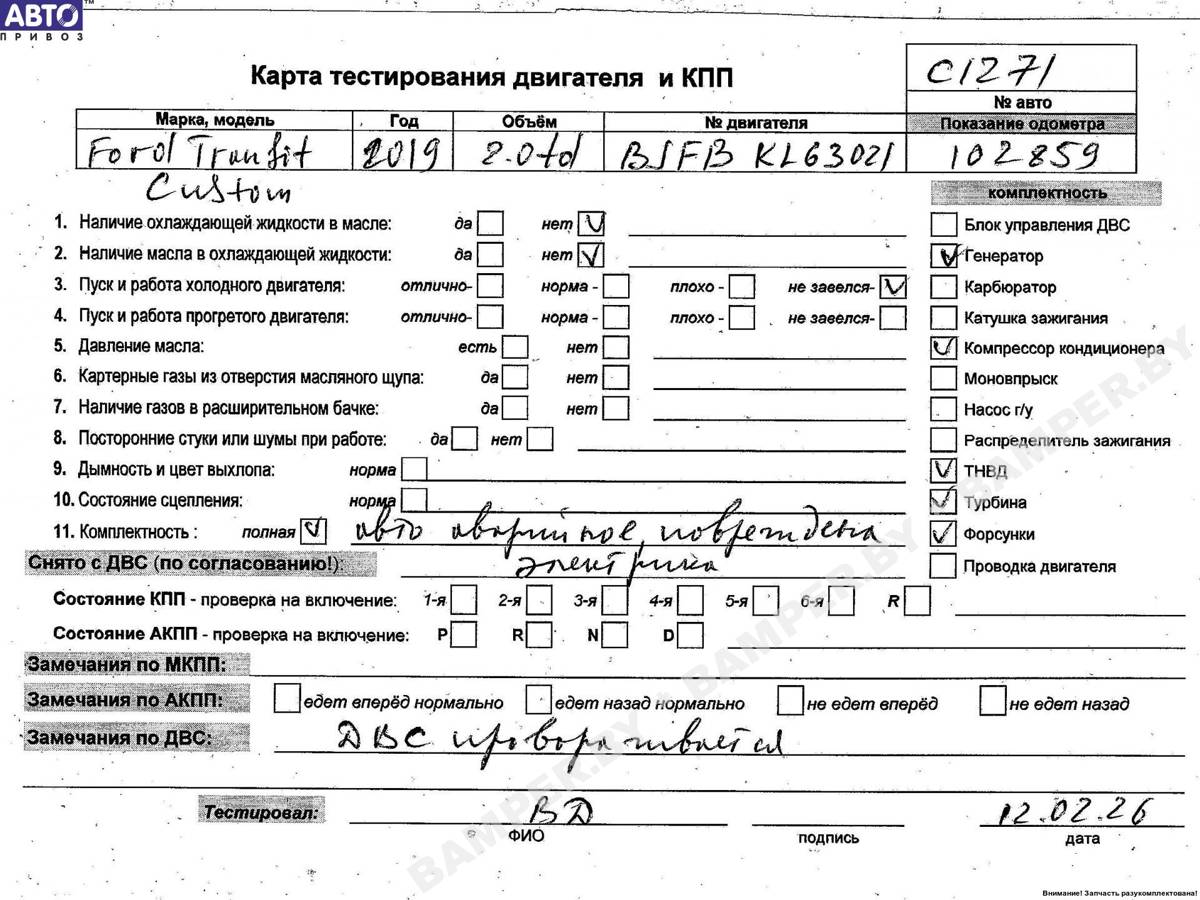 АВТО™
ПРИВОЗ
Карта тестирования двигателя и КПП
С1271
№ авто
Марка, модель Год Объём № двигателя Показание одометра
Ford Transit 2019 2.0td BSFB KL63021 102859
Custom
комплектность
1. Наличие охлаждающей жидкости в масле: да нет V
Блок управления ДВС
2. Наличие масла в охлаждающей жидкости: да нет V
V Генератор
3. Пуск и работа холодного двигателя: отлично- норма - плохо - не завелся- V
Карбюратор
4. Пуск и работа прогретого двигателя: отлично- норма - плохо - не завелся-
Катушка зажигания
5. Давление масла: есть нет
V Компрессор кондиционера
6. Картерные газы из отверстия масляного щупа: да нет
Моновпрыск
7. Наличие газов в расширительном бачке: да нет
Насос г/у
8. Посторонние стуки или шумы при работе: да нет
Распределитель зажигания
9. Дымность и цвет выхлопа: норма
V ТНВД
10. Состояние сцепления: норма
V Турбина
11. Комплектность : полная V авто аварийное, повреждена
V Форсунки
Снято с ДВС (по согласованию!): электрика
Проводка двигателя
Состояние КПП - проверка на включение: 1-я 2-я 3-я 4-я 5-я 6-я R
Состояние АКПП - проверка на включение: P R N D
Замечания по МКПП:
Замечания по АКПП: едет вперёд нормально едет назад нормально не едет вперёд не едет назад
Замечания по ДВС: ДВС проворачивается
Тестировал: ВД 12.02.26
ФИО подпись дата
BAMPER.BY • BAMPER.BY • BAMPER.BY • BAMPER.BY
Внимание! Запчасть разукомплектована!